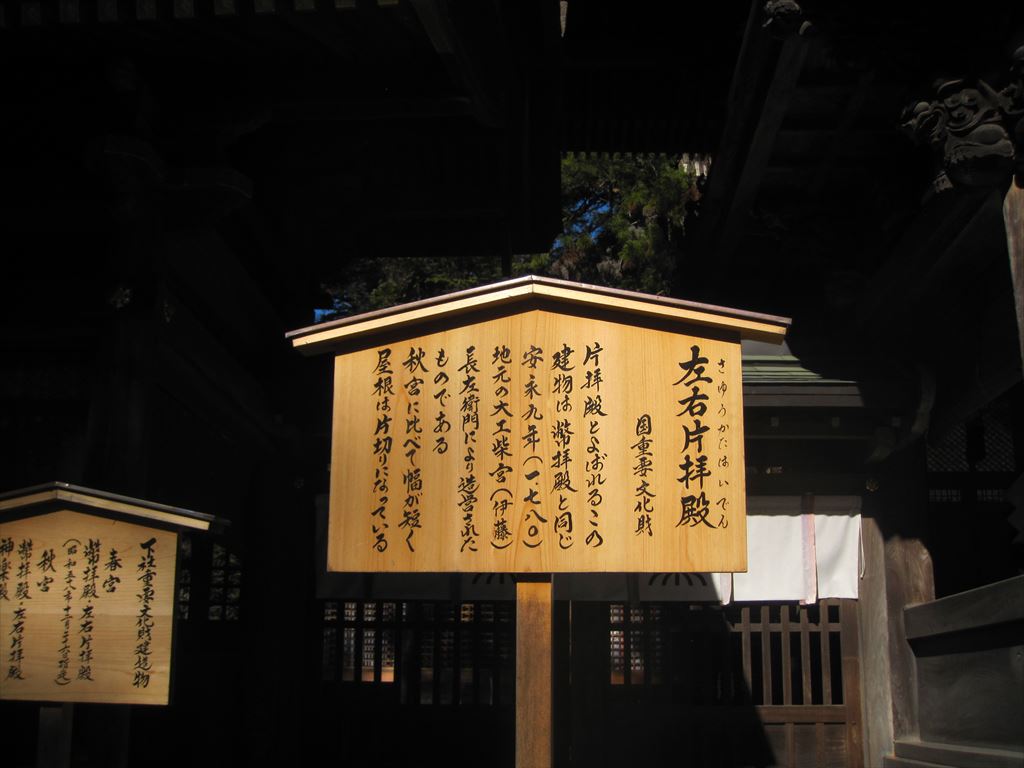 さゆうかたはいでん
左右片拝殿
国重要文化財
片拝殿とよばれるこの
建物は幣拝殿と同じ
安永九年(一七八〇)
地元の大工柴宮(伊藤)
長左衛門により造営された
ものである
秋宮に比べて幅が短く
屋根は片切りになっている
下社重要文化財建造物
春宮
幣拝殿・左右片拝殿
秋宮
幣拝殿・左右片拝殿
神楽殿